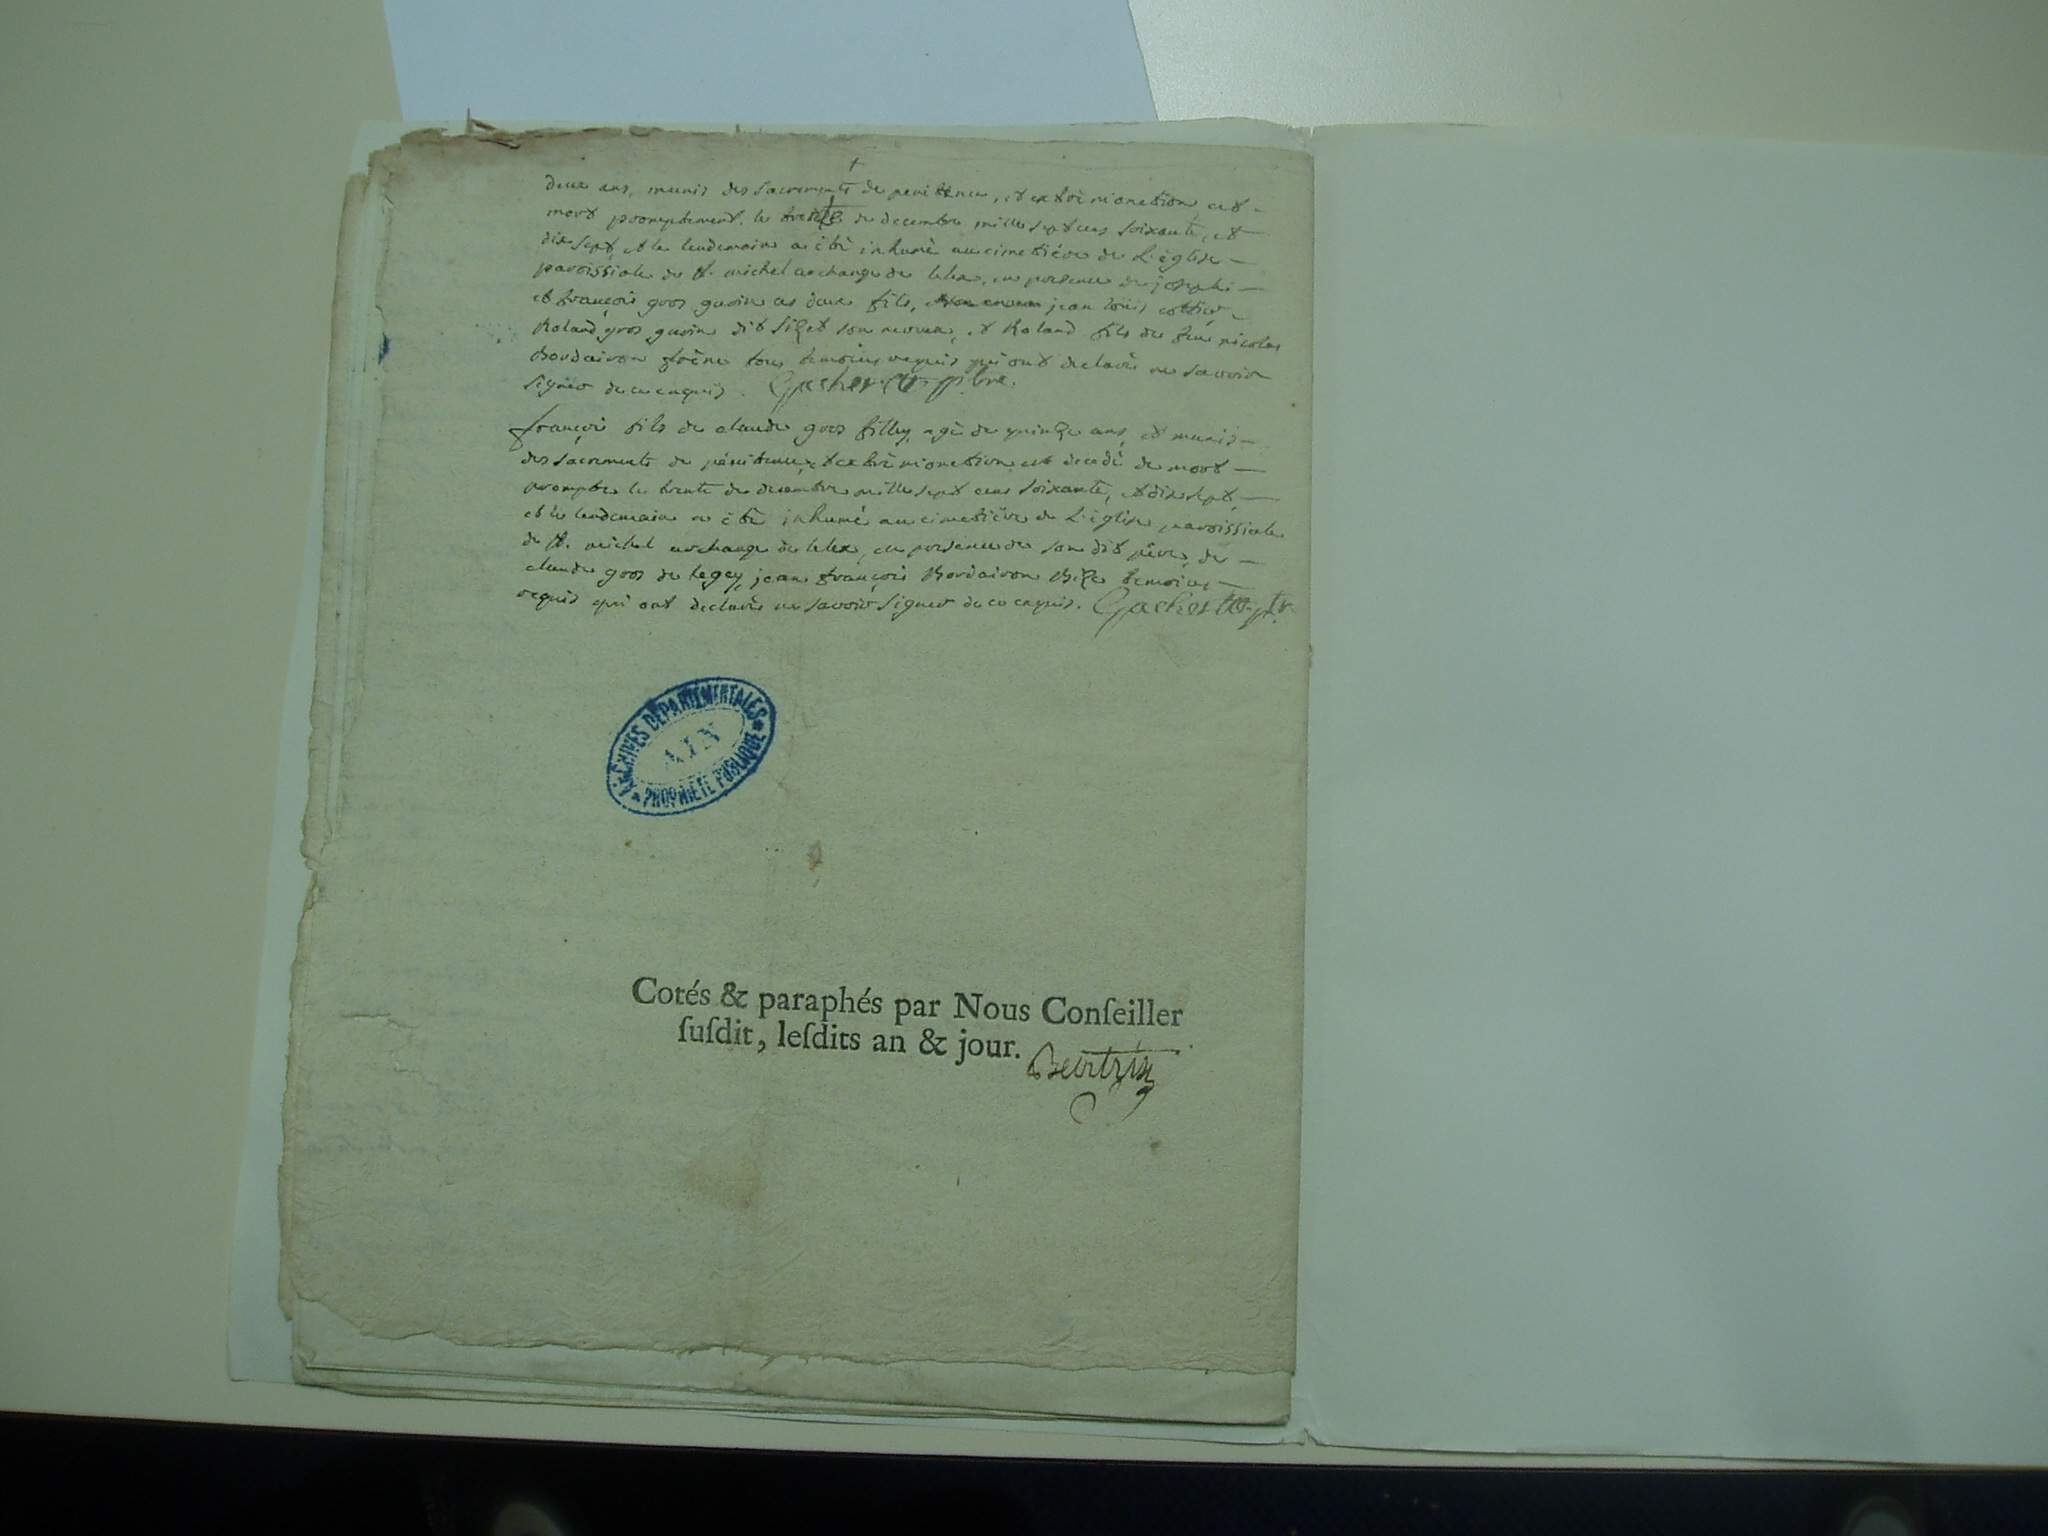 deux ans, munis des sacrements de penitence, et extrèmonction est
mort promptement. le trente de decembre mille sept cens soixante, et
dix sept, et le lendemain a été inhumé au cimetière de L'église
paroissiale de st. michel archange de lelex, en presence de joseph
et françois gros gurin ses deux fils, jean loüis
Roland gros gurin dit son neveu, et Roland fils de feu nicolas
Bordairon frère tous temoins requis qui ont declarés ne savoir
signer de ce enquis. Gacher ptre.
françois fils de claude gros fillty, agé de quinze ans, et munis
des sacrements de pénitence, et extrèmonction est decedé de mort
prompte le trente de decembre mille sept cens soixante, et dix sept,
et le lendemain a été inhumé au cimetière de L'église paroissiale
de st. michel archange de lelex, en presence de son dit père, de
claude gros de legey, jean françois Bordairon Bize temoins
requis qui ont declarés ne savoir signer de ce enquis. Gacher ptr.
ARCHIVES DEPARTEMENTALES
AIN
PROPRIETE PUBLIQUE
Cotés & paraphés par Nous Conſeiller
ſuſdit, leſdits an & jour.